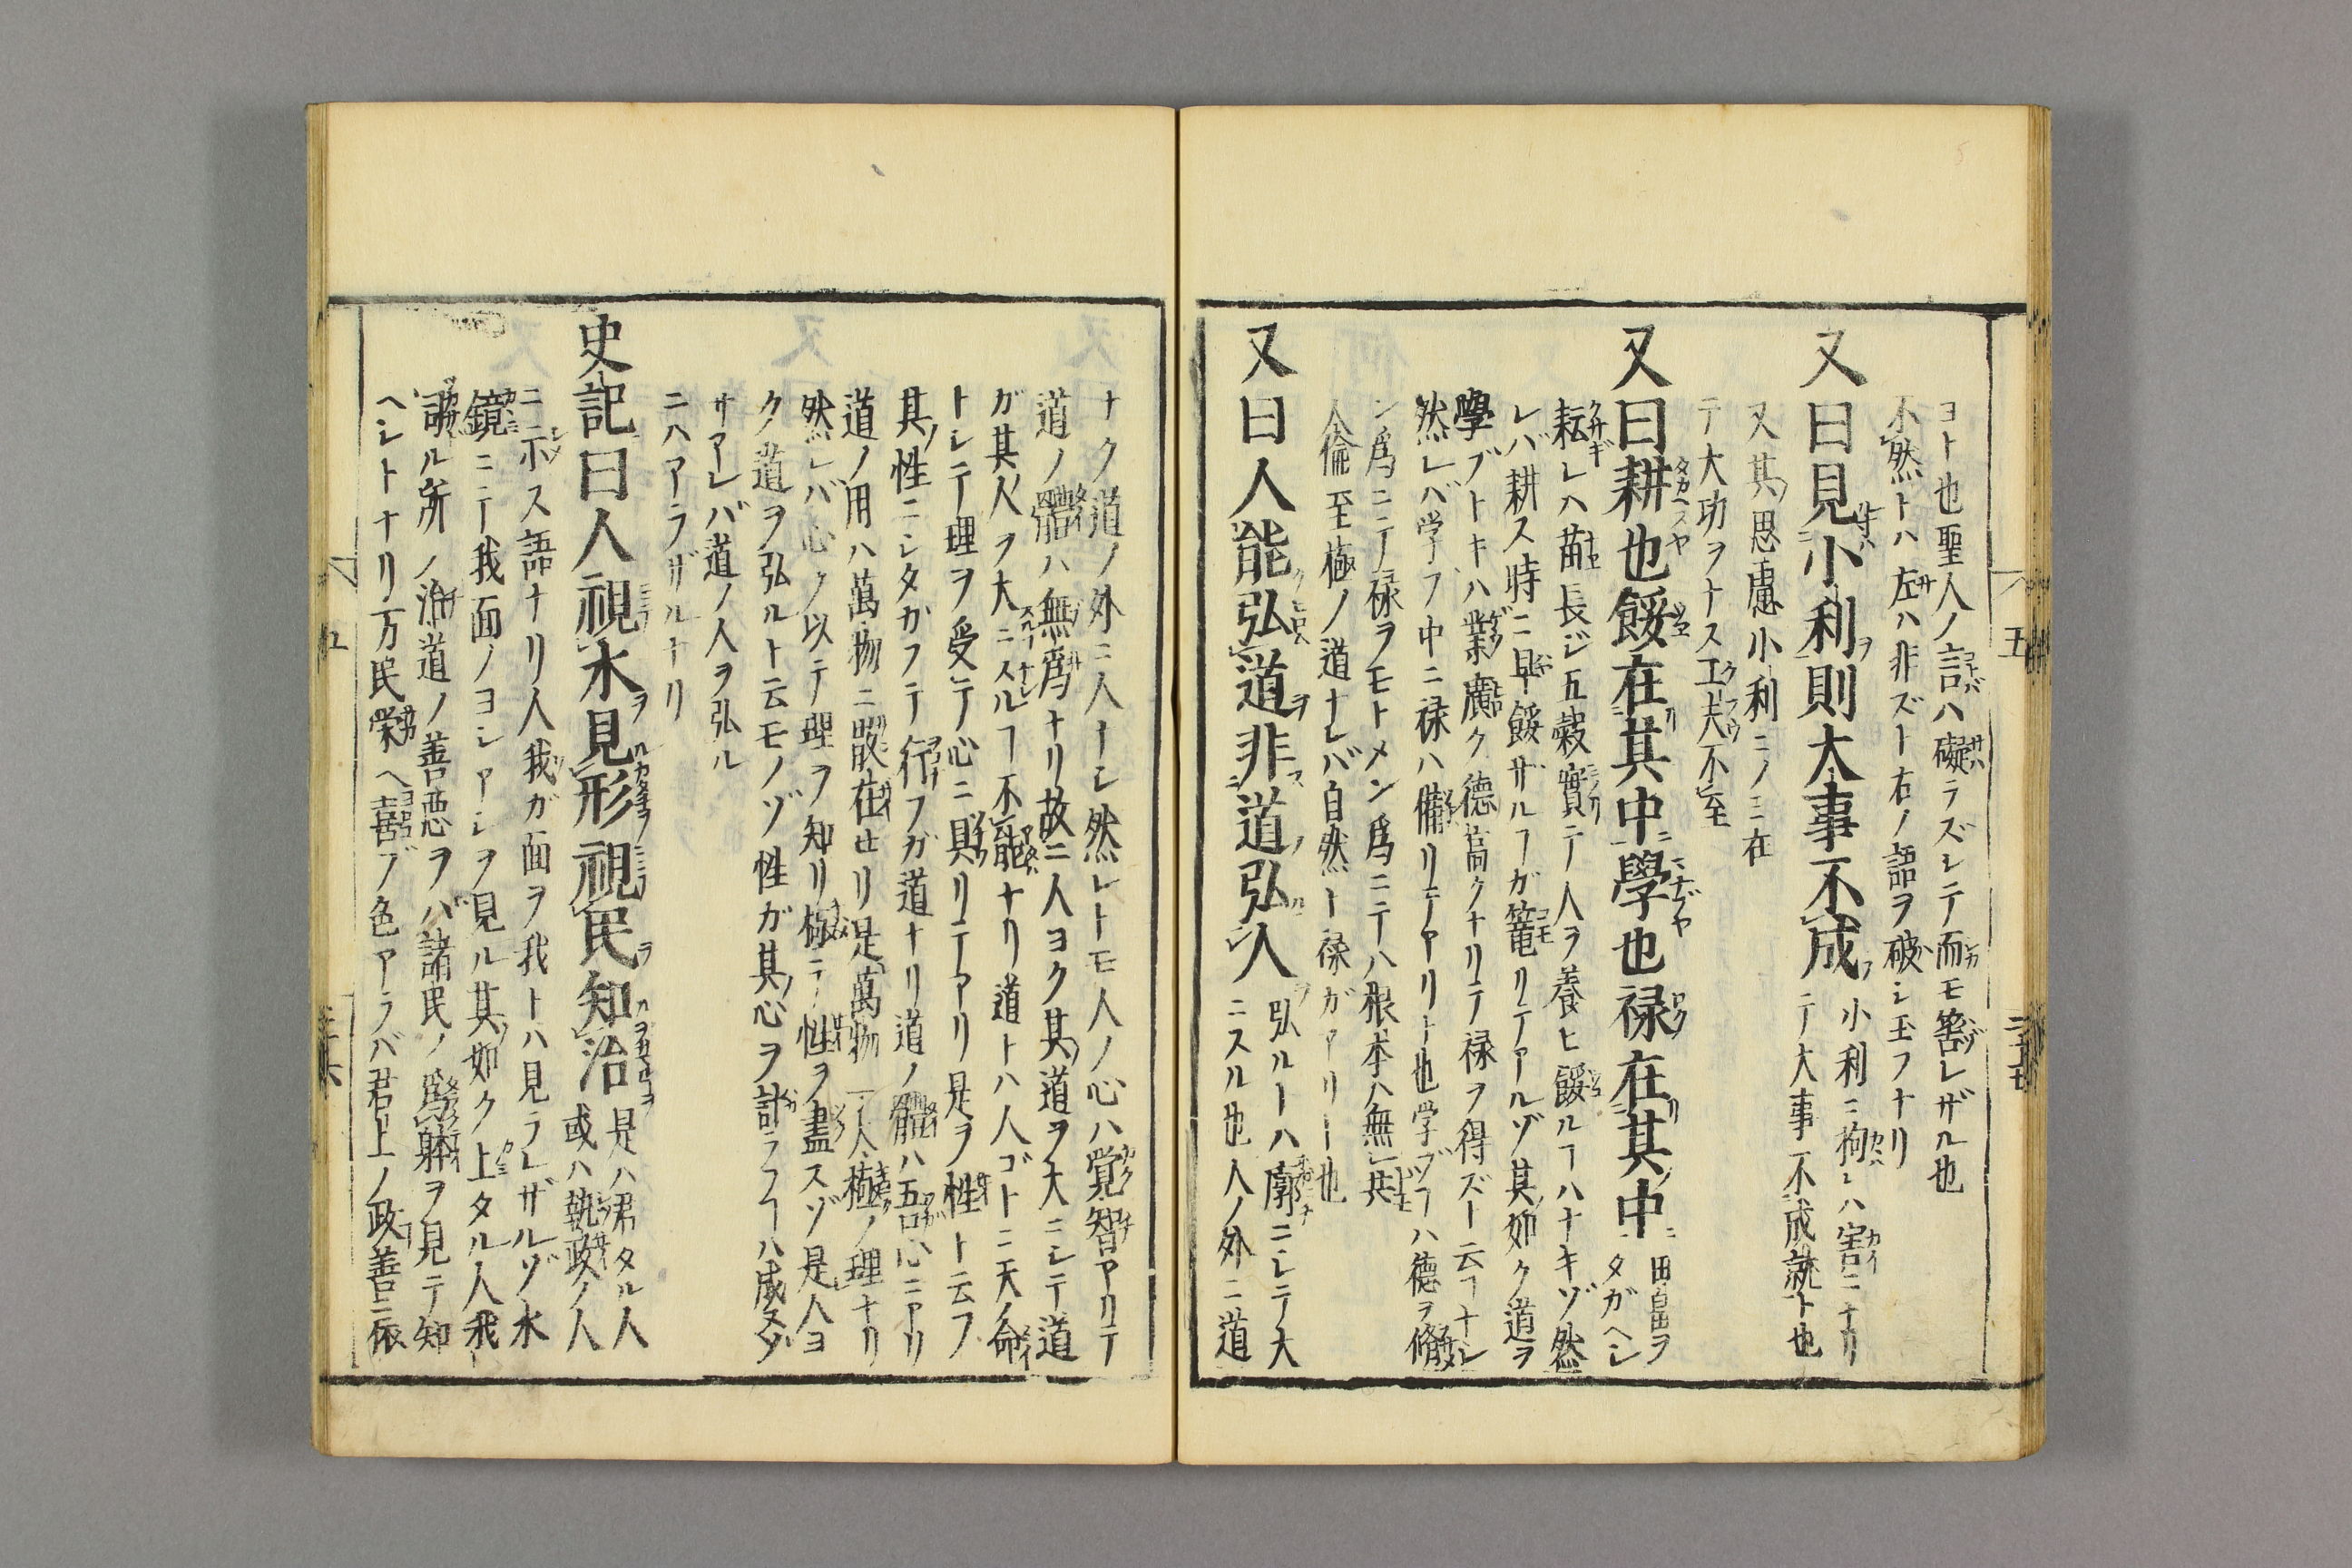 ヨト也聖人ノ言ハ礙ラズシテ而モ害レザル也
不然トハ左ハ非ズト右ノ語ヲ破シ玉フナリ
又曰見小利則大事不成
小利ニ拘レハ害ニナリ
テ大事不成就ト也
又其思慮小利ニノミ在
テ大功ヲナス工夫不至
又曰耕也餒在其中學也禄在其中
田畠ヲ
タガヘシ
耘レハ苗長ジ五穀實テ人ヲ養ヒ餒ルヿハナキゾ然
レバ耕ス時ニ早餒ザルヿガ篭リテアルゾ其如ク道ヲ
學ブトキハ業廣ク德高クナリテ禄ヲ得ズト云ヿナシ
然レバ学フ中ニ禄ハ備リテアリト也学ブヿハ德ヲ脩
ン為ニテ禄ヲモトメン爲ニテハ根本ハ無共
人倫至極ノ道ナレバ自然ト禄ガアリト也
又曰人能弘道非道弘人
弘ルトハ廓ニシテ大
ニスル也人ノ外ニ道
ナク道ノ外ニ人ナシ然レトモ人ノ心ハ覚智アリテ
道ノ體ハ無爲ナリ故ニ人ヨク其道ヲ大ニシテ道
ガ其人ヲ大ニスルヿ不能ナリ道トハ人ゴトニ天ノ命
トシテ理ヲ受テ心ニ具リテアリ是ヲ性ト云フ
其性ニシタガフテ行フガ道ナリ道ノ體ハ吾心ニアリ
道ノ用ハ萬物ニ散在せリ是萬物一人極ノ理ナリ
然レバ心ク以テ理ヲ知リ極テ性ヲ盡スゾ是人ヨ
ク道ヲ弘ルト云モノゾ性ガ其心ヲ計ラフヿハ成又ゾ
サアレバ道ノ人ヲ弘ル
ニハアラザルナリ
史記曰人視水見形視民知治
是ハ君タル人
或ハ執政ノ人
ニ示ス語ナリ人我ガ面ヲ我トハ見ラレザルゾ水
鏡ニテ我面ノヨシアシヲ見ル其如ク上タル人我
ル所ノ治道ノ善悪ヲハ諸民ノ躰ヲ見テ知
ヘシトナリ万民栄ヘ喜ブ色アラバ君上ノ政善ニ依